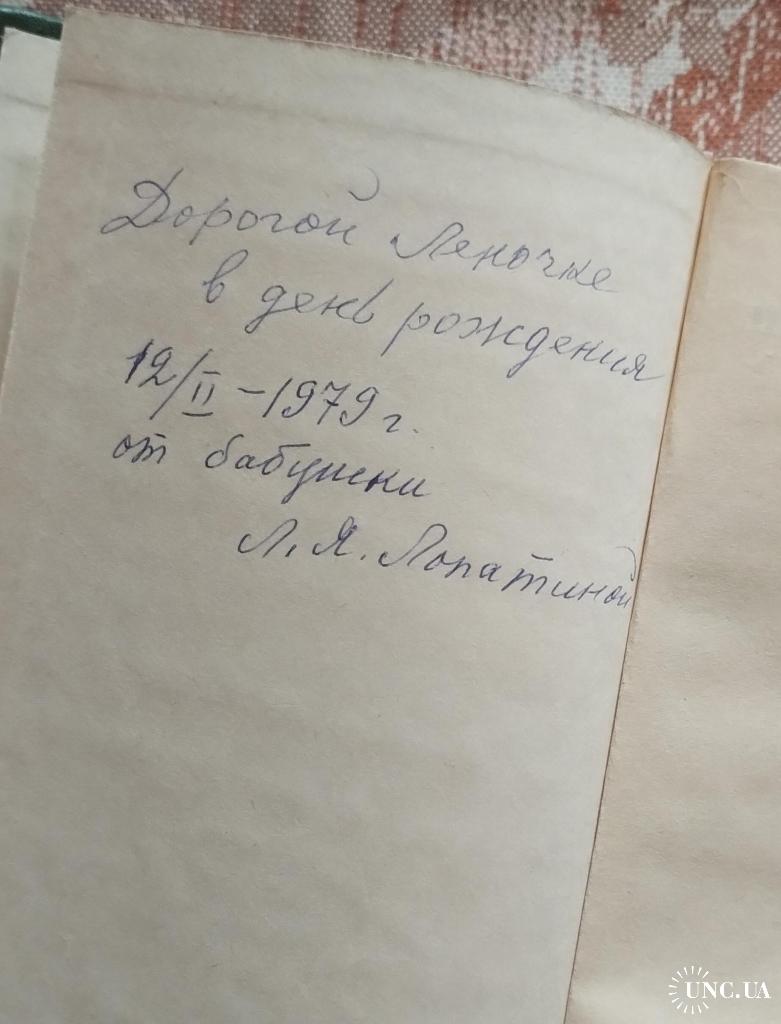 Дорогой Леночке
в день рождения
12/II-1979 г.
от бабушки
Л. Я. Лопатиной
UNC.UA